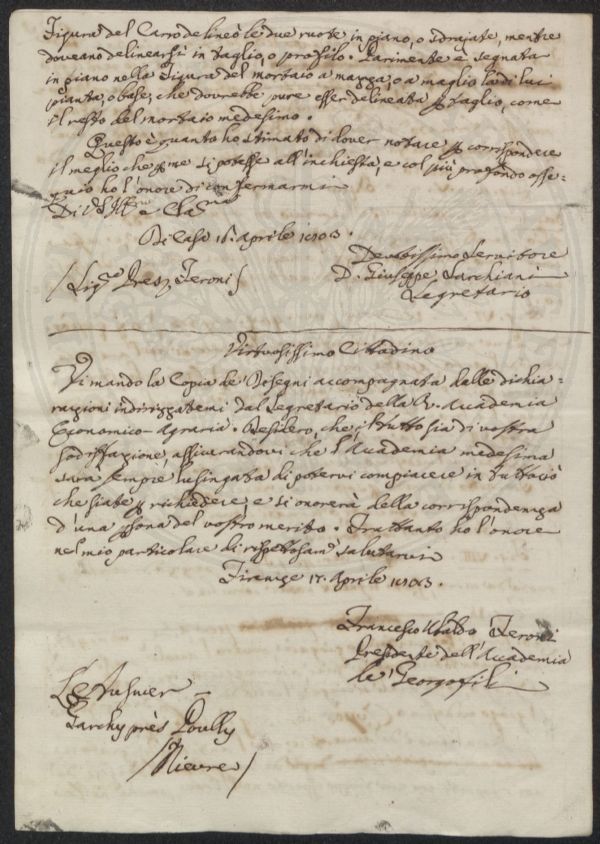 Figura del Carro delineò le due ruote in piano, o sdrajate, mentre
doveano delinearsi in taglio, o profilo. Parimente è segnata
in piano nella Figura del mortaio a manga, o a maglio la di lui
pianta, o base, che dovrebbe pure esser delineata p taglio, come
il resto del mortaio medesimo.
Questo è quanto ho stimato di dover notare p corrispondere
il meglio che p me si potesse all'inchiesta, e col più profondo osse-
quio ho l'onore di confermarmi
Di VS Ill.ma e Cla.ma
Di Casa Aprile 1803.
Devotissimo Servitore
/Sig.re Pres. Feroni/
D. Giuseppe Sarchiani
Segretario
Virtuosissimo Cittadino
Vi mando la Copia de' Disegni accompagnata dalle dichia-
razioni indirizzatemi dal Segretario della R. Accademia
Economico-Agraria. Desidero, che il tutto sia di vostra
sodisfazione, assicurandovi che l'Accademia medesima
sarà sempre lusingata di potervi compiacere in tuttociò
che siate p richiedere, e si onorerà della corrispondenza
d'una psona del vostro merito. Frattanto ho l'onore
nel mio particolare di rispettosam.e salutarvi
Firenze 17. Aprile 1803.
Francesco Ubaldo Feroni
Presidente dell'Accademia
de' Georgofili
Garchy près Pouilly
/Nievre/